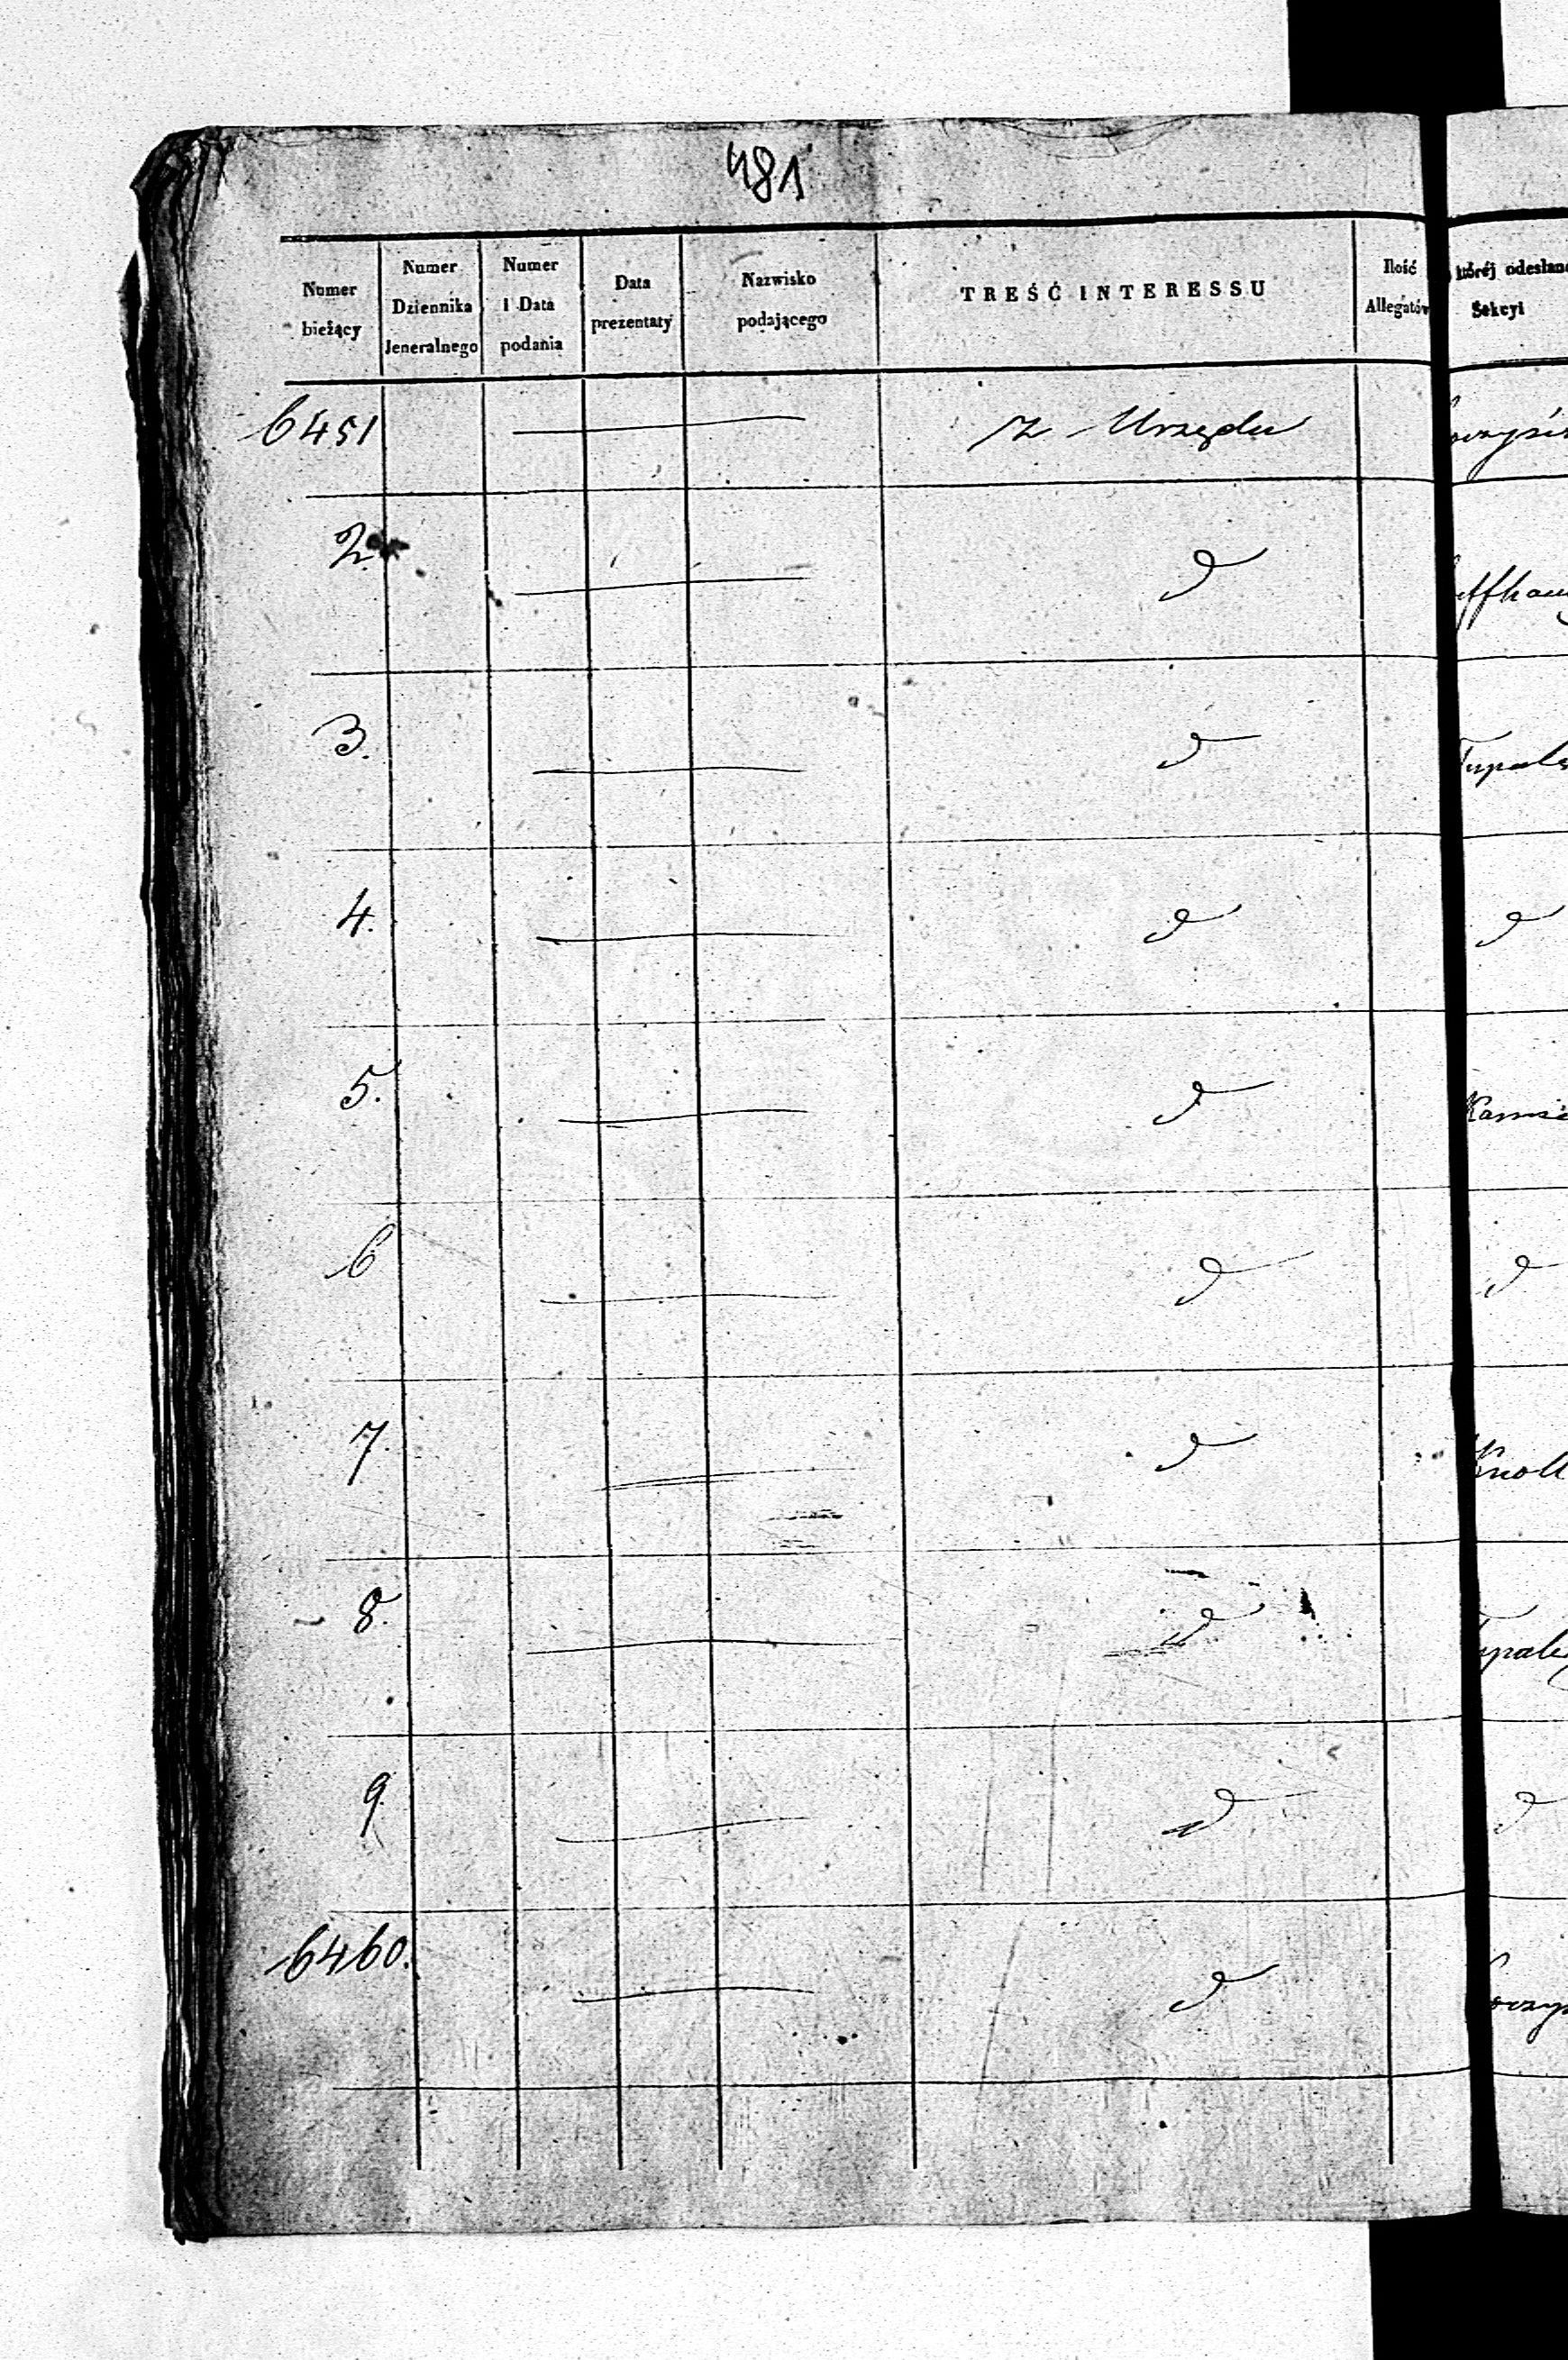 481
Numer bieżący | Numer Dziennika Jeneralnego | Numer i Data podania | Data prezentaty | Nazwisko podającego | TREŚĆ INTERESSU | Ilość Allegatów | której odesłano Sekcyi
6451 z Urzędu
2. d
3. d Tupal
4. d d
5. d
6 d d
7. d Knoll
8. d
9. d d
6460. d